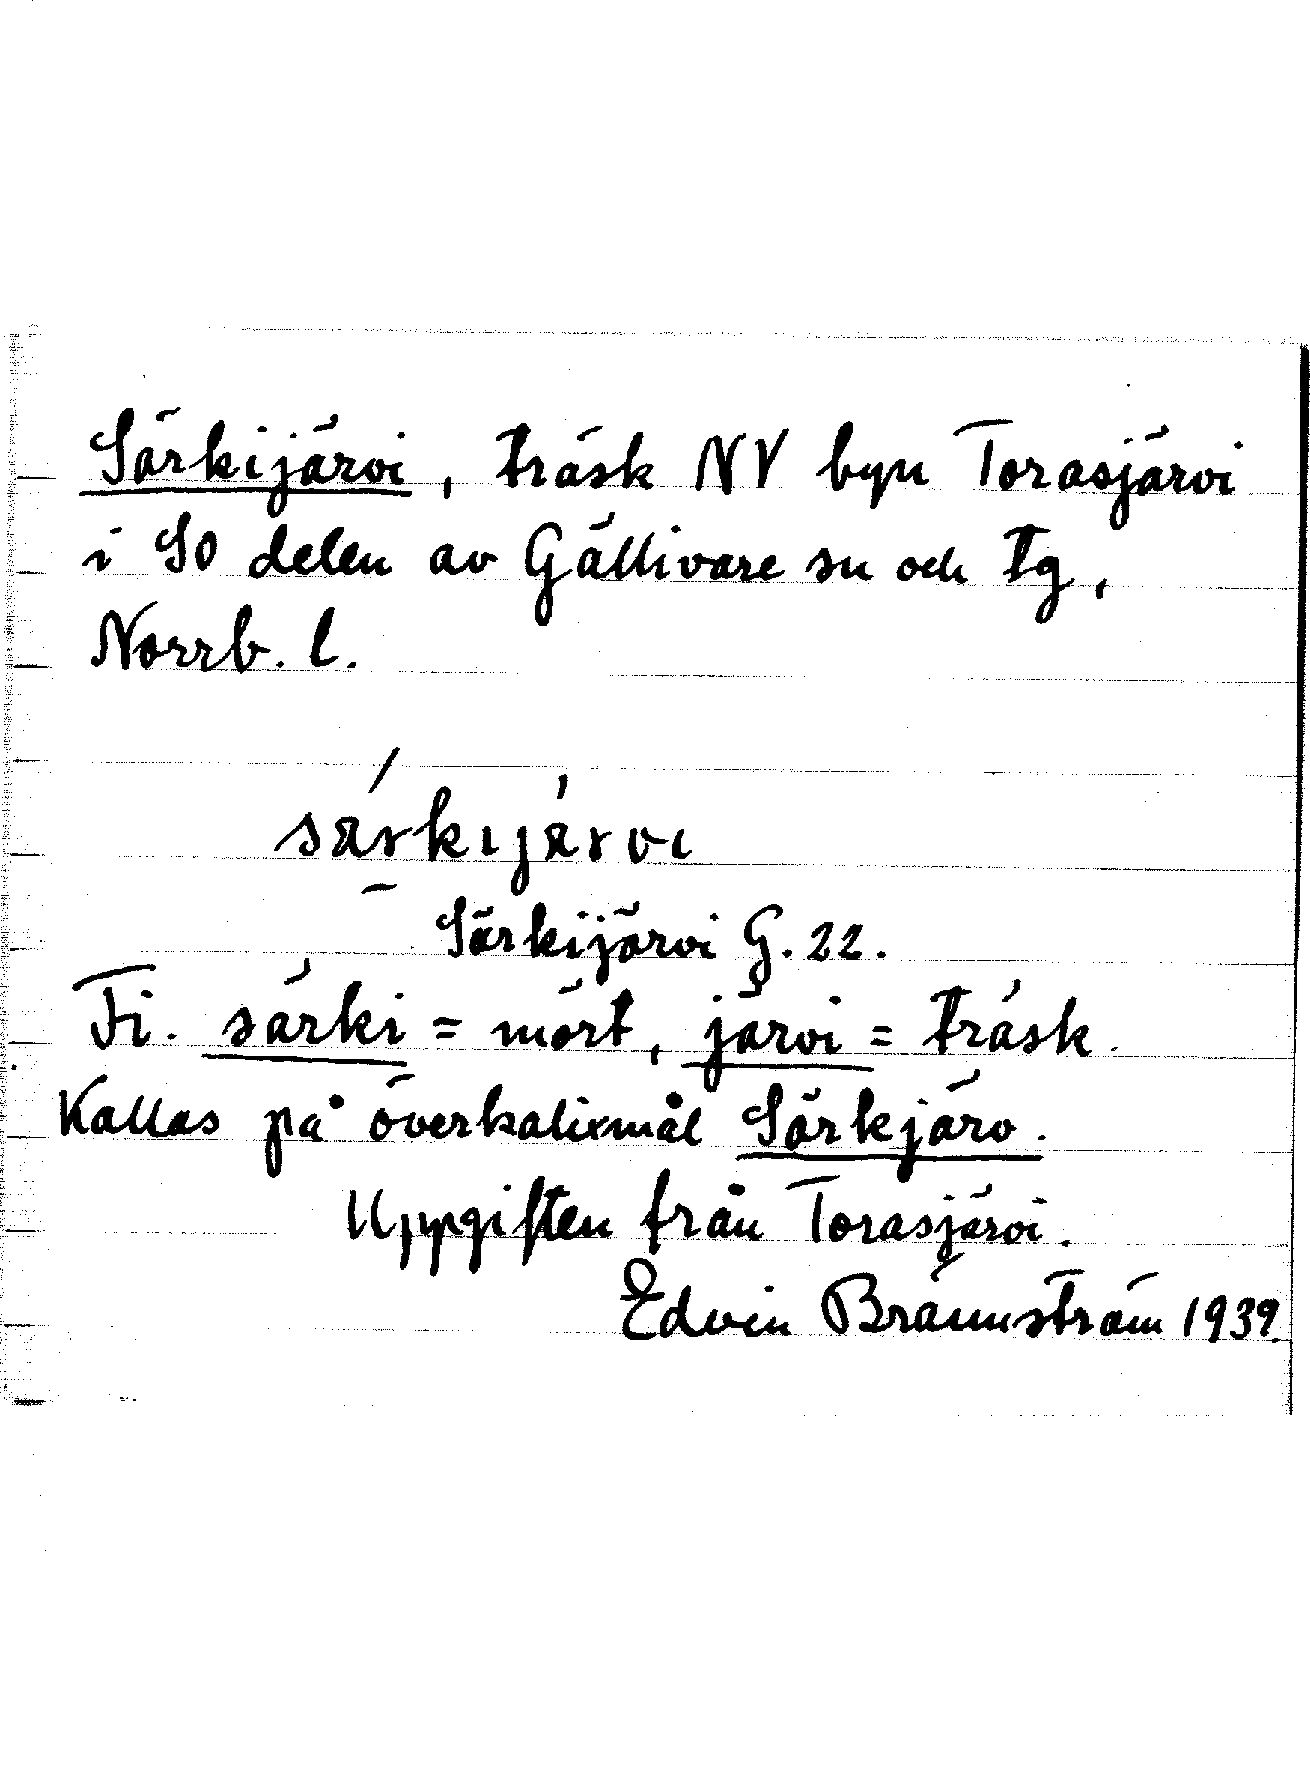 Särkijärvi, träsk NV byn Torasjärvi
i SO delen av Gällivare sn och tg,
Norrb. l.
särkijärvi
Särkijärvi G. 22.
Fi. särki = mört, järvi = träsk.
Kallas på överkalixmål Särkjärv.
Uppgiften från Torasjärvi.
Edvin Brännström 1939.